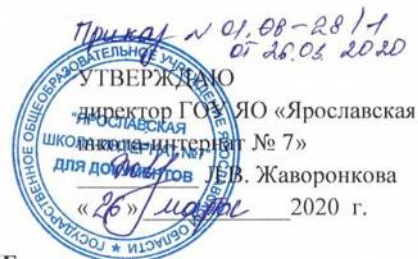 Приказ № 01.08-28/1
от 26.03 2020
УТВЕРЖДАЮ
директор ГОУ ЯО «Ярославская
школа-интернат № 7»
Л.В. Жаворонкова
«26» марта 2020 г.
ГОСУДАРСТВЕННОЕ ОБЩЕОБРАЗОВАТЕЛЬНОЕ УЧРЕЖДЕНИЕ ЯРОСЛАВСКОЙ ОБЛАСТИ
"ЯРОСЛАВСКАЯ
ШКОЛА-ИНТЕРНАТ №7"
ДЛЯ ДОКУМЕНТОВ